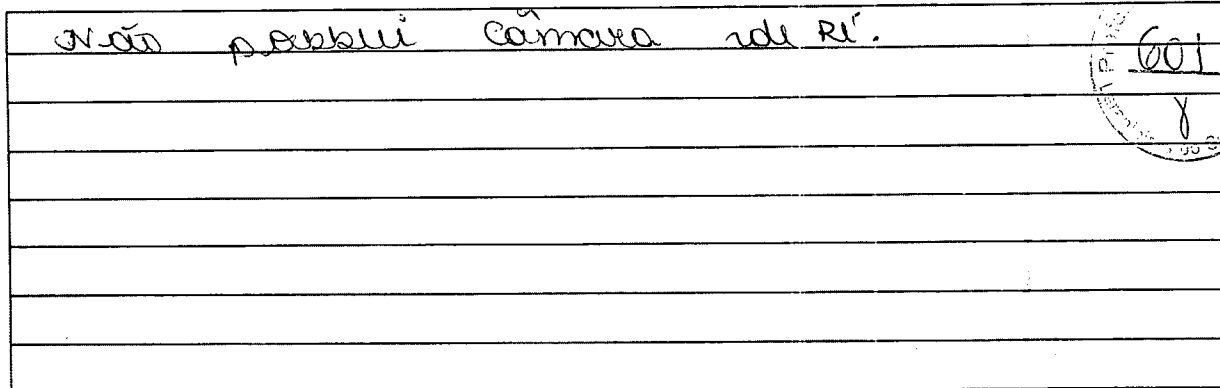 Não possui câmara de Ré.
601